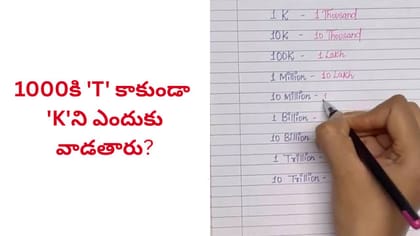 1000కి 'T' కాకుండా
'K'ని ఎందుకు
వాడతారు?
1 K - 1 Thousand
10K - 10 Thousand
100K - 1 Lakh
1 Million - 10 Lakh
10 Million -
1 Billion -
10 Billion
1 Trillion -
10 Trillion -